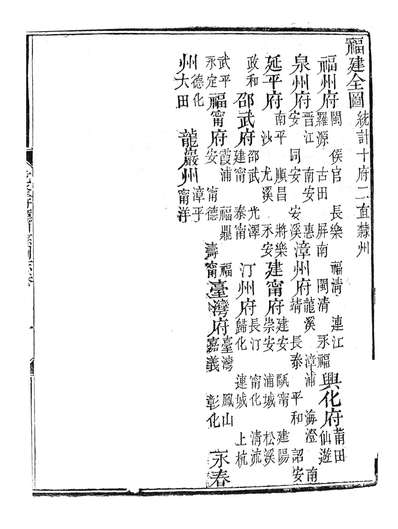 福建全圖 統計十府二直隸州
福州府 閩 侯官 長樂 福清 連江 羅源 古田 屏南 閩清 永福 興化府 莆田 仙遊
泉州府 晉江 南安 惠安 同安 安溪 漳州府 龍溪 漳浦 海澄 南靖 長泰 平和 詔安
延平府 南平 順昌 將樂 沙 尤溪 永安 建甯府 建安 甌甯 建陽 崇安 浦城 松溪
政和 邵武府 邵武 光澤 建甯 泰甯 汀州府 長汀 甯化 清流 歸化 連城 上杭
武平 永定 福甯府 霞浦 福鼎 福安 甯德 壽甯 臺灣府 臺灣 鳳山 嘉義 彰化 永春
州 德化 大田 龍巖州 漳平 甯洋